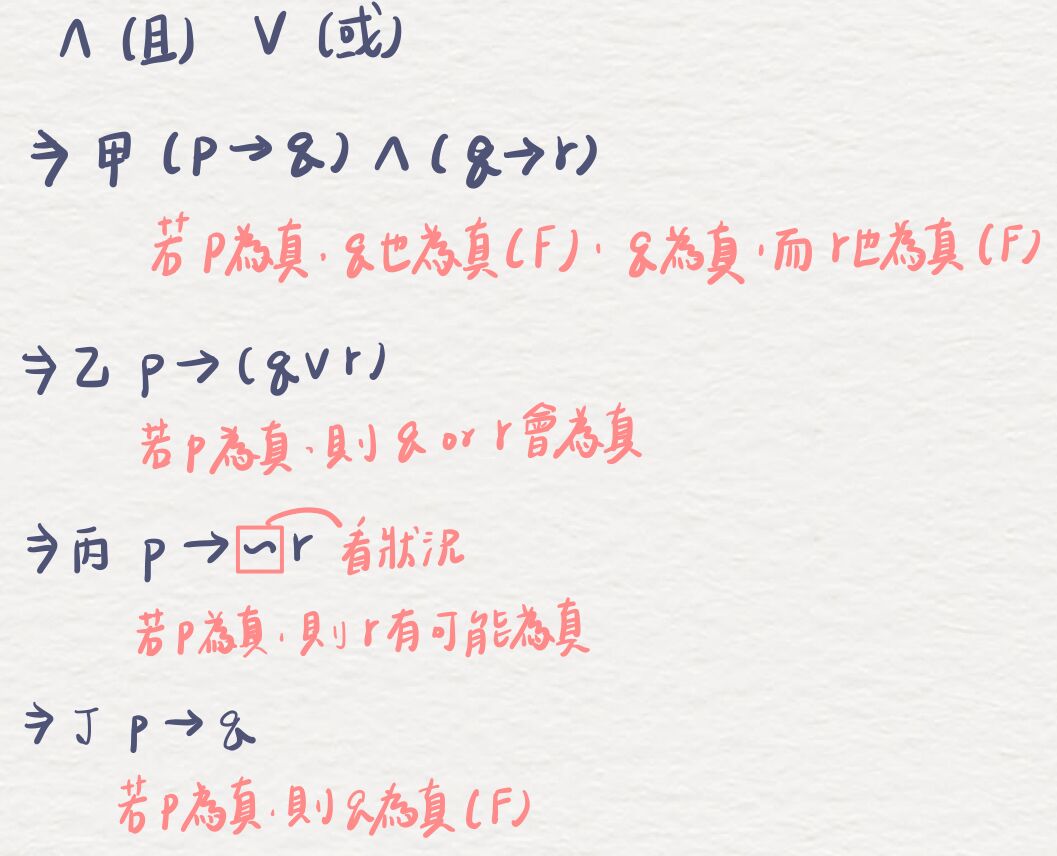 ∧ (且) ∨ (或)
⇒ 甲 (P→q) ∧ (q→r)
若 P為真,q也為真(F),q為真,而r也為真(F)
⇒ 乙 p→(q∨r)
若p為真,則 q or r會為真
⇒ 丙 p→~r 看狀況
若p為真,則r有可能為真
⇒ 丁 p→q
若p為真,則q為真(F)